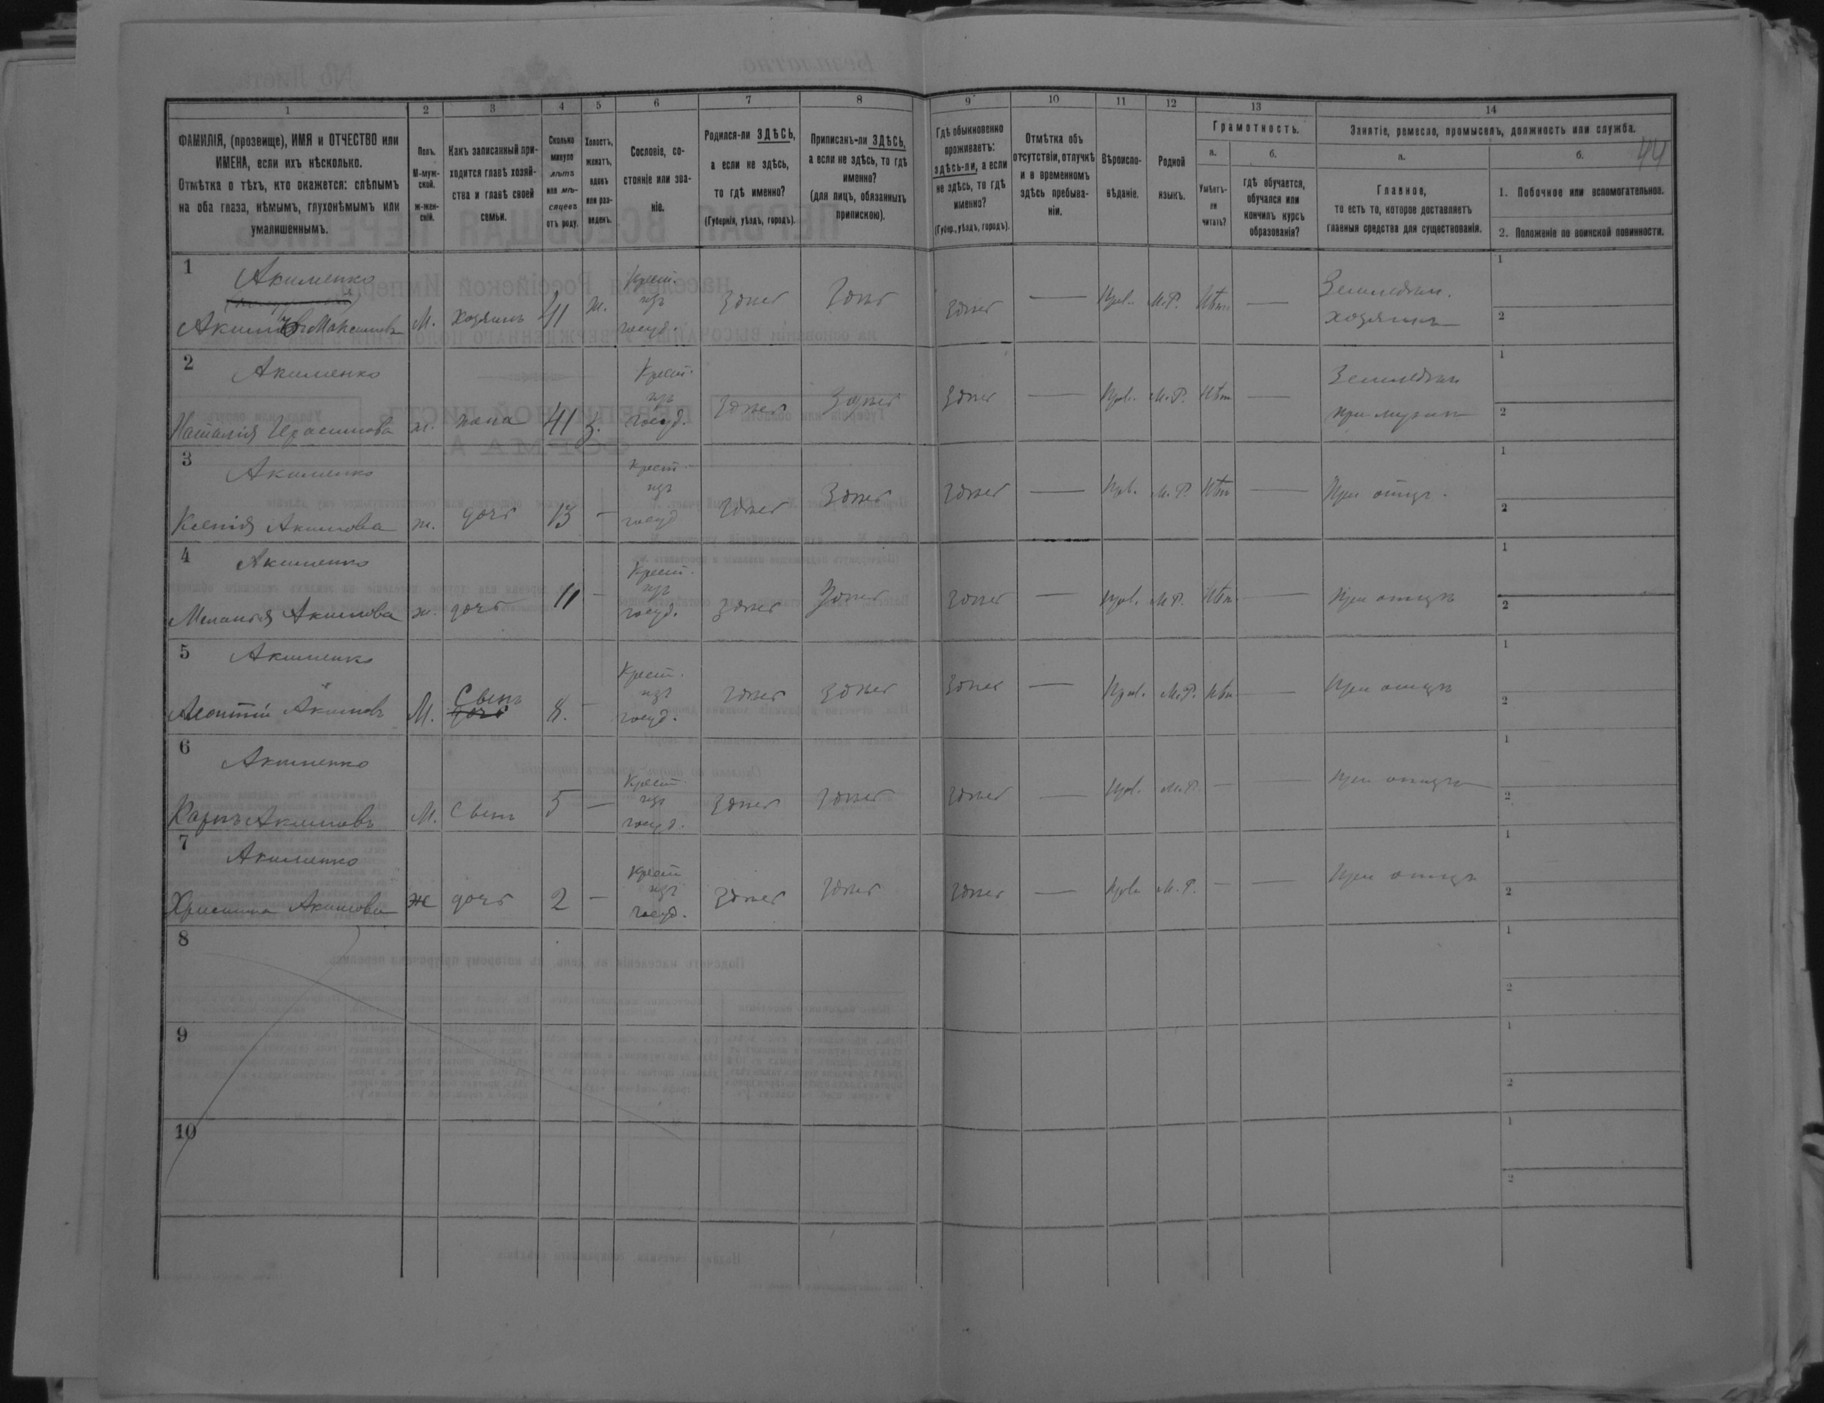 1 2 3 4 5 6 7 8 9 10 11 12 13 14
44
ФАМИЛІЯ, (прозвище), ИМЯ и ОТЧЕСТВО или
ИМЕНА, если ихъ нѣсколько.
Отмѣтка о тѣхъ, кто окажется: слѣпымъ
на оба глаза, нѣмымъ, глухонѣмымъ или
умалишеннымъ.
Полъ.
М-муж-
ской.
ж-жен-
скій.
Какъ записанный при-
ходится главѣ хозяй-
ства и главѣ своей
семьи.
Сколько
минуло
лѣтъ
или мѣ-
сяцевъ
отъ роду.
Холостъ,
женатъ,
вдовъ
или раз-
веденъ.
Сословіе, со-
стояніе или зва-
ніе.
Родился-ли ЗДѢСЬ,
а если не здѣсь,
то гдѣ именно?
(Губернія, уѣздъ, городъ).
Приписанъ-ли ЗДѢСЬ,
а если не здѣсь, то гдѣ
именно?
(для лицъ, обязанныхъ
припискою).
Гдѣ обыкновенно
проживаетъ:
здѣсь-ли, а если
не здѣсь, то гдѣ
именно?
(Губер., уѣздъ, городъ).
Отмѣтка объ
отсутствіи, отлучкѣ
и о временномъ
здѣсь пребыва-
ніи.
Вѣроиспо-
вѣданіе.
Родной
языкъ.
Грамотность.
а.
Умѣетъ-
ли
читать?
б.
гдѣ обучается,
обучался или
кончилъ курсъ
образованія?
Занятіе, ремесло, промыселъ, должность или служба.
а.
Главное,
то есть то, которое доставляетъ
главныя средства для существованія.
б.
1. Побочное или вспомогательное.
2. Положеніе по воинской повинности.
1 Акименко
Акимъ Максимовъ М. хозяинъ 41 ж. Крест. изъ госуд. здѣсь здѣсь здѣсь — Прав. М.Р. Нѣтъ — Земледѣл. хозяинъ 1 2
2 Акименко
Наталія Герасимова ж. жена 41 з. Крест. изъ госуд. здѣсь здѣсь здѣсь — Прав. М.Р. Нѣтъ — Земледѣл. при мужѣ 1 2
3 Акименко
Ксенія Акимова ж. дочь 13 — Крест. изъ госуд. здѣсь здѣсь здѣсь — Прв. М.Р. Нѣтъ — При отцѣ. 1 2
4 Акименко
Меланія Акимова ж. дочь 11 — Крест. изъ госуд. здѣсь здѣсь здѣсь — Прав. М.Р. Нѣтъ При отцѣ 1 2
5 Акименко
Леонтій Акимовъ М. Сынъ дочь 8. — Крест. изъ госуд. здѣсь здѣсь здѣсь — Прав. М.Р. Нѣтъ — При отцѣ 1 2
6 Акименко
Карпъ Акимовъ М. Сынъ 5 — Крест. изъ госуд. здѣсь здѣсь здѣсь — Прв. М.Р. — — При отцѣ 1 2
7 Акименко
Христина Акимова Ж дочь 2 — Крест. изъ госуд. здѣсь здѣсь здѣсь — Прав М.Р. — — При отцѣ 1 2
8 1 2
9 1 2
10 1 2